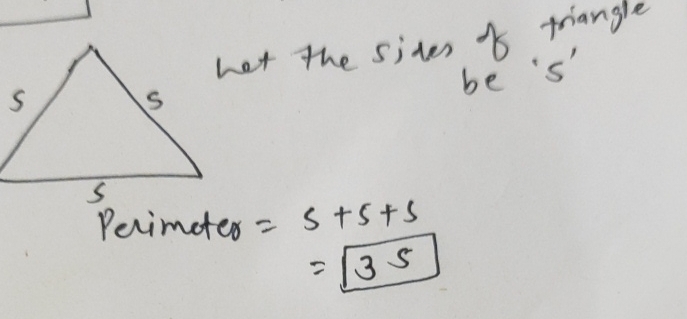 Let the sides of triangle
be 's'
s
s
s
Perimeter = s + s + s
= 3 s